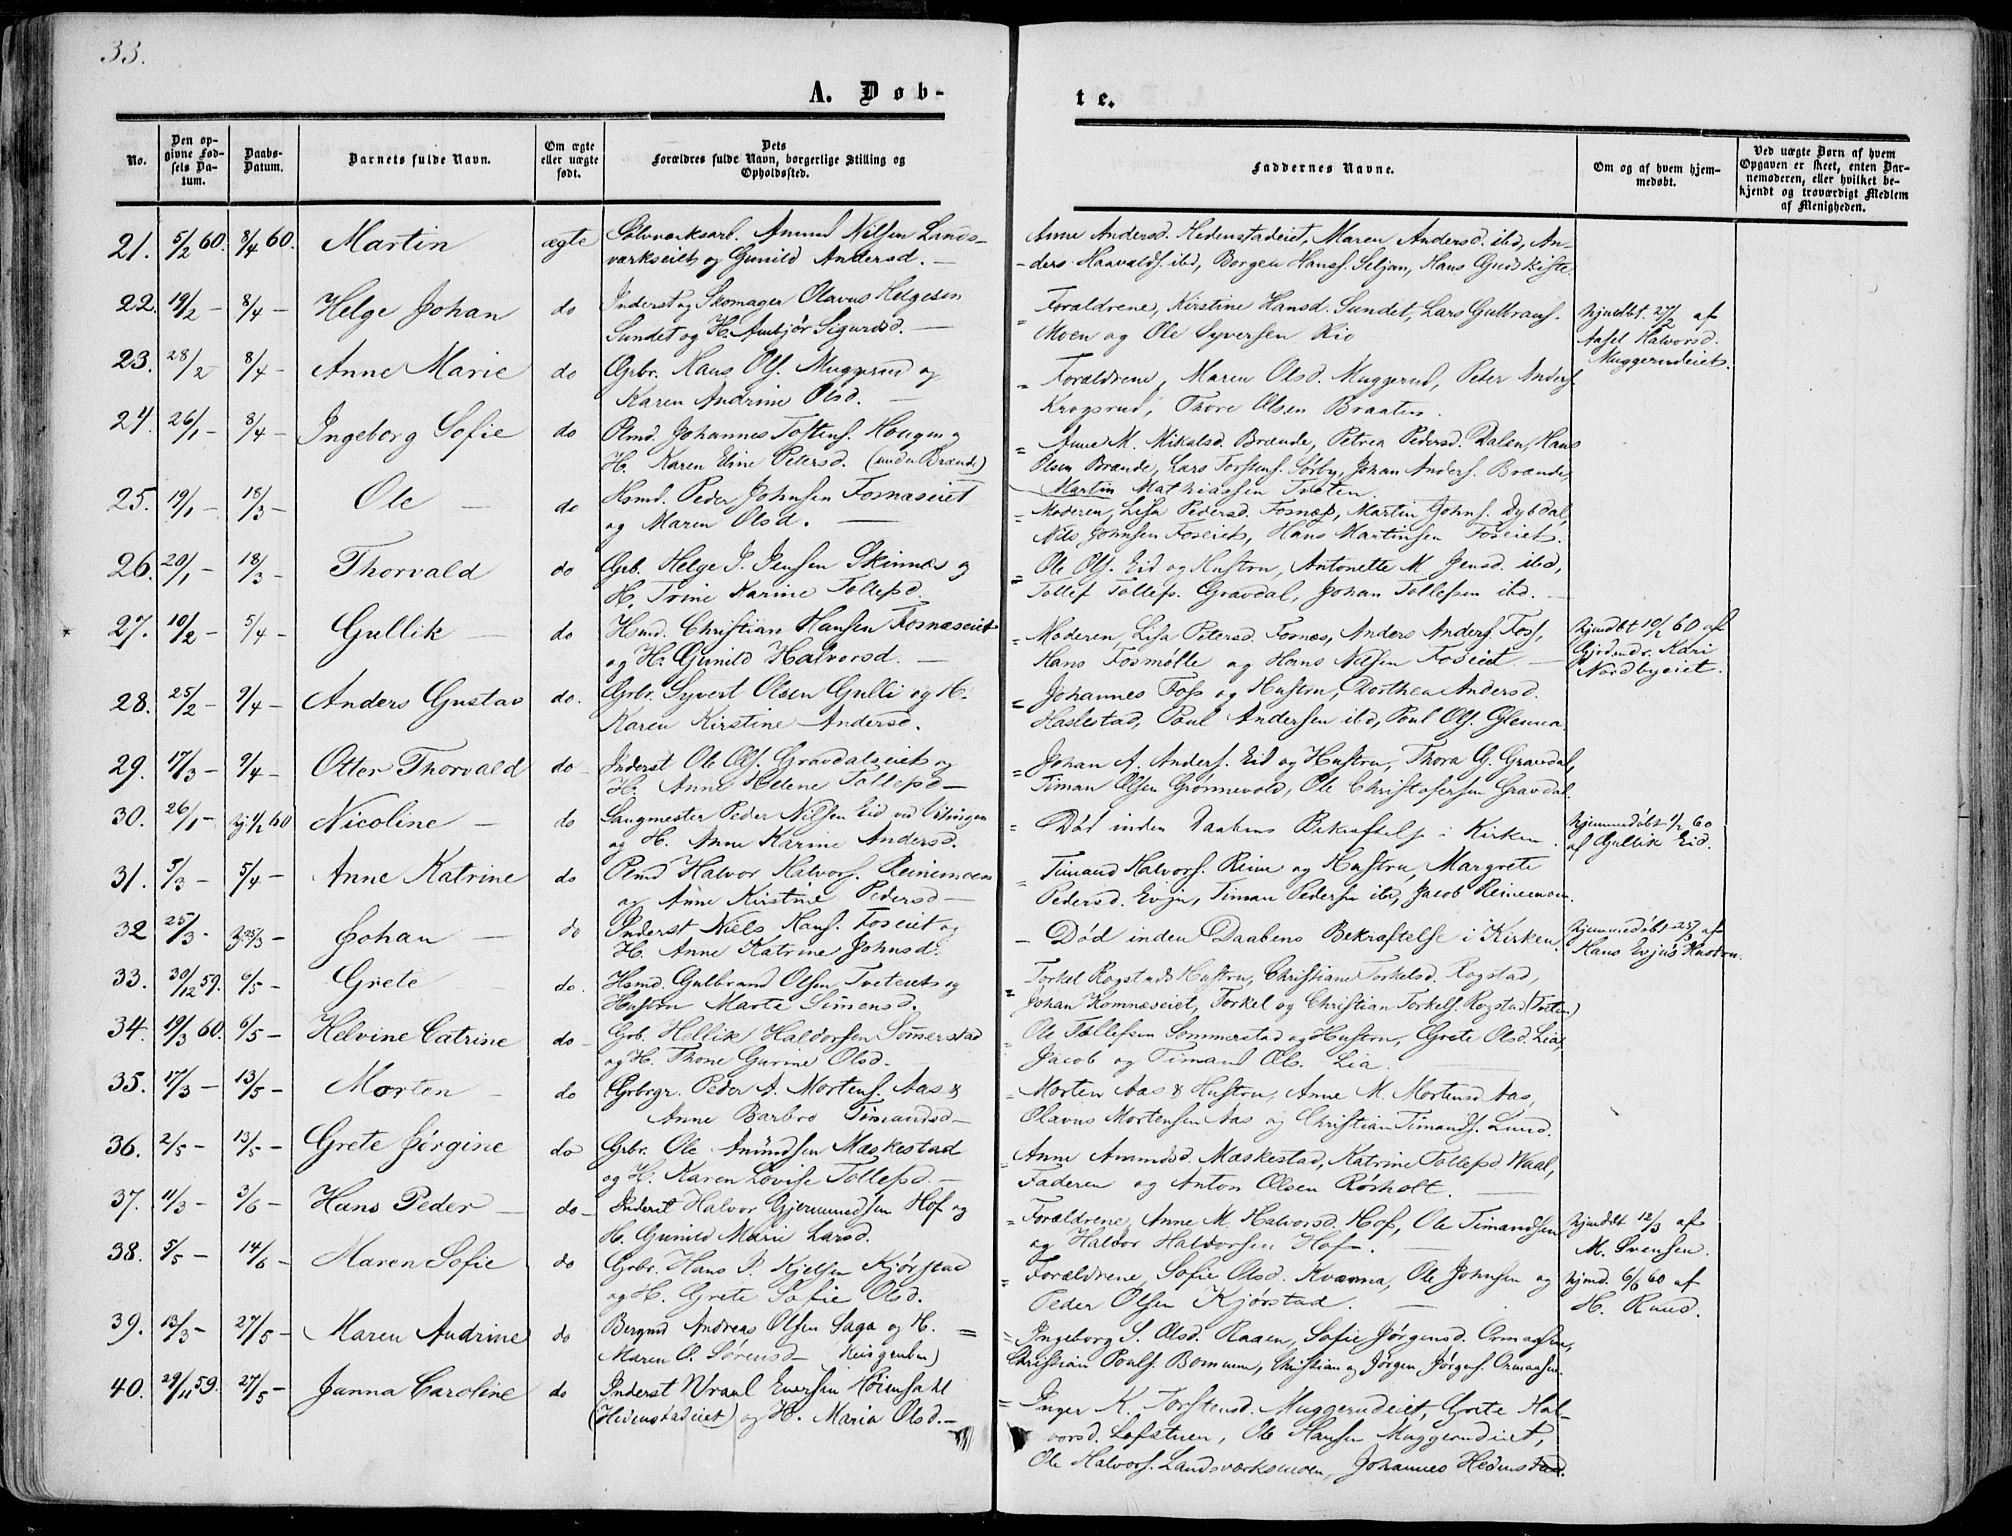 33.
A. Døb-
te.
No.
Den op-
givne Fød-
sels Da-
tum.
Daabs-
Datum.
Barnets fulde Navn.
Om ægte
eller uægte
født.
Dets
Forældres fulde Navn, borgerlige Stilling og
Opholdssted.
Faddernes Navne.
Om og af hvem hjem-
medøbt.
Ved uægte Børn af hvem
Opgaven er skeet, enten Bar-
nemoderen, eller hvilket be-
kjendt og troværdigt Medlem
af Menigheden.
21. 5/2 60. 8/4 60. Martin ægte Sølvværksarb. Amund Nilsen Lands-
værkseiet og Gunild Andersd.
Anne Andersd. Hedenstadeiet, Maren Andersd. ibd, An-
ders Haavalds. ibd, Borger Hanss. Seljan, Hans
22. 19/2 - 8/4 - Helge Johan do Inderst og Skomager Olavus Helgesen
Sundet og H. Anbjør Sigurdsd.
Forældrene, Kirstine Hansd. Sundet, Lars Gulbrans.
Moen og Ole Syversen Lio
hjmdbt. 27/2 af
Aasel Halvorsd.
Muggerudeiet.
23. 28/2 8/4 - Anne Marie do Grbr. Hans Ols. Muggerud og
Karen Andrine Olsd.
Forældrene, Maren Olsd. Muggerud, Peter Anders.
Krogsrud, Thore Olsen Braaten.
24. 26/1 - 8/4 - Ingeborg Sofie do Plmd. Johannes Tostens. Hougen og
H. Karen Eline Petersd. (under Brænde)
Anne M. Mikalsd. Brænde, Petrea Pedersd. Dalen, Hans
Olsen Brænde, Lars Torstens. Sørby, Johan Anders. Brænde,
Martin Mathiassen Tveten.
25. 19/1 - 18/3 - Ole do Hsmd. Peder Johnsen Fosnæseiet
og Maren Olsd.
Moderen, Lisa Pedersd. Fosnæs, Martin Johns. Dybdal,
Nils Johnsen Foseiet, Hans Martinsen Foseiet.
26. 20/1 - 18/3 - Thorvald do Grb. Helge J. Jensen Skinnes og
H. Trine Karine Tollefsd.
Ole Ols. Eid og Hustru, Antonette M Jensd. ibd,
Tollef Tollefs. Gravdal, Johan Tollefsen ibd.
27. 10/2 - 5/4 - Gullik do Hsmd. Christian Hansen Fosnæseiet
og H. Gunild Halvorsd.
Moderen, Lisa Petersd. Fosnæs, Anders Anders. Foss,
Hans Fosmølle og Hans Nilsen Foseiet
hjmdbt 10/2 60 af
Gjordmdr. Kari
Nordbyeiet.
28. 25/2 - 9/4 - Anders Gustav do. Grbr. Syvert Olsen Gulli og H.
Karen Kirstine Andersd.
Johannes Foss og Hustru, Dorthea Andersd.
Haslestad, Poul Andersen ibd, Poul Ols. Glenna.
29. 17/3 - 9/4 - Otter Thorvald do Inderst Ole Ols. Gravdalseiet og
H. Anne Helene Tollefsd
Johan A. Anders. Eid og Hustru, Thora G. Gravdal,
Timan Olsen Grønnevold, Ole Christofersen Gravdal.
30. 26/1 - hj. 1/2 60 Nicoline do Saugmester Peder Nilsen Eid ved
og H. Anne Karine Andersd.
Død inden Daabens Bekræftelse i Kirken.
hjemmedøbt 1/2 60
af Gullik Eid.
31. 5/3 - 5/4 - Anne Katrine do Plmd Halvor Halvors. Reinemoen
og Anne Kirstine Pedersd
Timand Halvors. Reine og Hustru, Margrete
Pedersd. Evju, Timan Pedersen ibd, Jacob Reinemoen.
32 25/3 - hj. 25/3 - Johan do Inderst Niels Hans. Foseiet og
H. Anne Katrine Johnsd.
Død inden Daabens Bekræftelse i Kirken.
hjemmedøbt 25/3 af
Hans Evjus Hustru.
33. 30/12 59. 6/5 - Grete do. Hsmd. Gulbrand Olsen Tveteiet og
Hustru Marte Simensd.
Torkel Rogstads Hustru, Christiane Torkelsd. Rogstad,
Johan Komnæseiet, Torkel og Christian Torkels. Rogstad (Tveten)
34. 19/3 60. 6/5 - Helvine Catrine do Grb. Hellik Haldorsen Somerstad
og H. Thone Gurine Olsd.
Ole Tollefsen Sommerstad og Hustru, Grete Olsd. Lia,
Jacob og Timand Ols. Lia.
35. 17/3 - 13/5 - Morten do Grbrgr. Peder A. Mortens. Aas &
Anne Barbro Timandsd
Morten Aas & Hustru, Anne M. Mortensd Aas,
Olavus Mortensen Aas og Christian Timands. Lund.
36. 2/5 - 13/5 - Grete Jørgine do Grbr. Ole Amundsen Mæskestad
og H. Karen Lovise Tollefsd.
Anne Amundsd. Mæskestad, Katrine Tollefsd Waal,
Faderen og Anton Olsen Rørholt.
37. 11/3 - 3/6 - Hans Peder do Inderst Halvor Gjermundsen Hof og
H. Gunild Marie Larsd.
Forældrene, Anne M. Halvorsd. Hof, Ole Timandsen
og Halvor Haldorsen Hof.
hjmdbt 12/3 af
M. Svensen.
38. 5/5 - 14/6 - Maren Sofie do Grbr. Hans P. Kjelsen Kjørstad
og H. Grete Sofie Olsd.
Forældrene, Sofie Olsd. Kværna, Ole Johnsen og
Peder Olsen Kjørstad.
hjmd. 6/6 60 af
H. Ruud.
39. 13/3 - 27/5 - Maren Andrine do Bergmd Andreas Olsen Saga og H.
Maren O. Sørensd
Ingeborg S. Olsd. Raaen, Sofie Jørgensd. Ormaasen,
Christian Pouls. Bommen, Christian og Jørgen Jørgens. Ormaasen.
40. 29/11 59. 27/5 - Janna Caroline do Inderst Wraal Eversen Høiensahl
(Hedenstadeiet) og H. Maria Olsd.
Inger K. Torstensd. Muggerudeiet, Grete Hal-
vorsd. Lofstuen, Ole Hansen Muggerudeiet,
Ole Halvors. Landsværksmoen, Johannes Hedenstad.